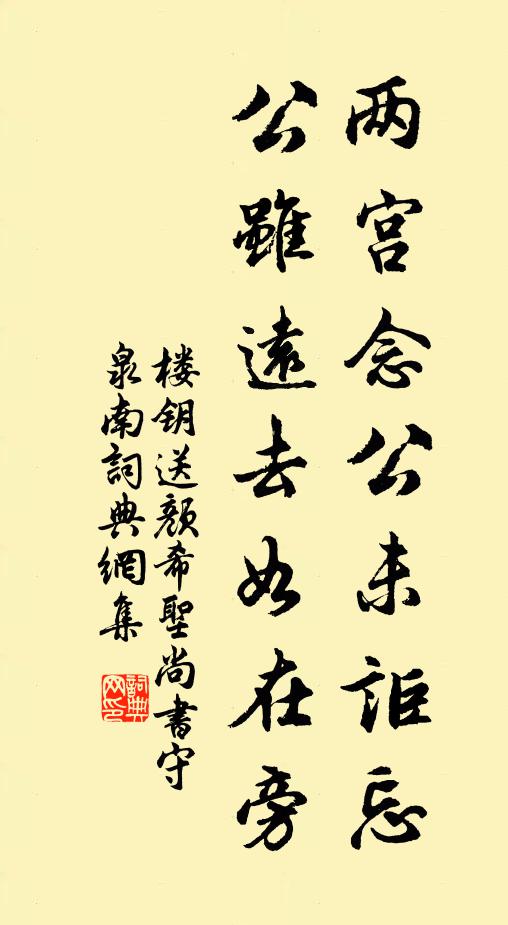 两宫念公未讵忘
公雖遠去如在旁
楼钥送颜希聖尚書守
泉南詞典網集
詞典
网印